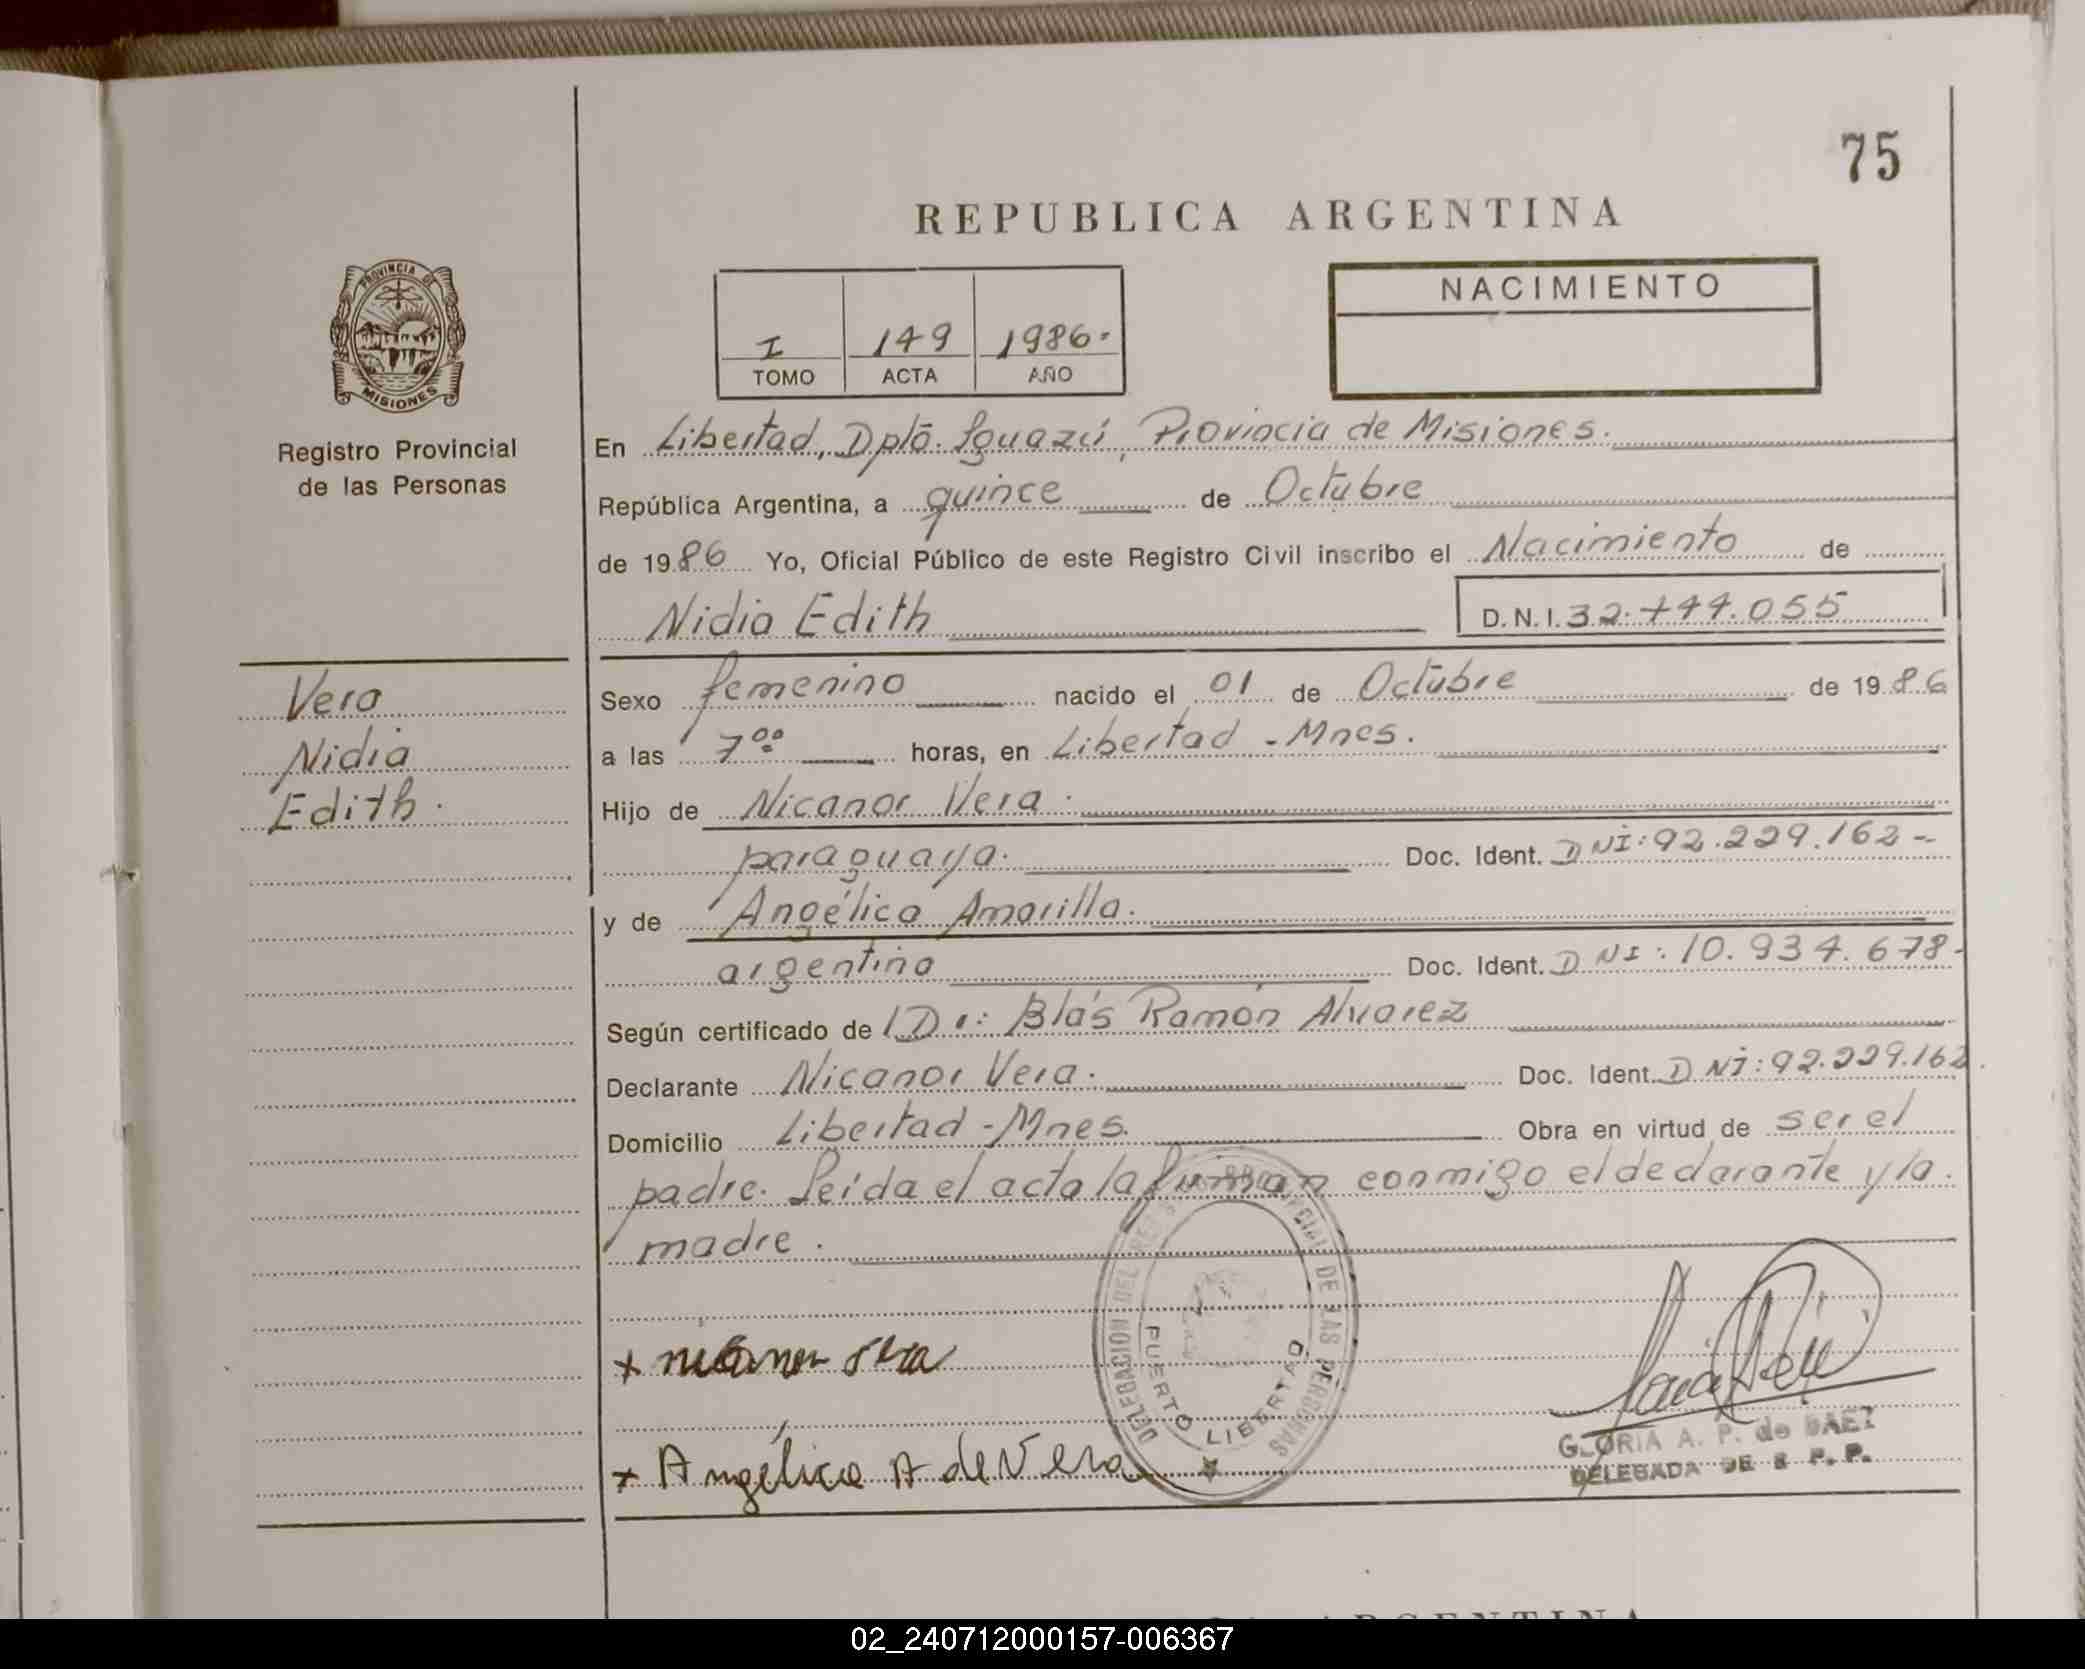 75
REPUBLICA ARGENTINA
PROVINCIA DE
MISIONES
Registro Provincial
de las Personas
I 149 1986.
TOMO ACTA AÑO
NACIMIENTO
En Libertad, Dptō. Iguazú, Provincia de Misiones.
República Argentina, a quince de Octubre
de 1986 Yo, Oficial Público de este Registro Civil inscribo el Nacimiento de
Nidia Edith D.N.I. 32.744.055
Vera
Nidia
Edith.
Sexo femenino nacido el 01 de Octubre de 1986
a las 7⁰⁰ horas, en Libertad - Mnes.
Hijo de Nicanor Vera.
paraguaya. Doc. Ident. DNI: 92.229.162-
y de Angélica Amarilla.
argentina Doc. Ident. DNI: 10.934.678-
Según certificado de Dr: Blás Ramón Alvarez
Declarante Nicanor Vera. Doc. Ident. DNI: 92.229.162.
Domicilio Libertad - Mnes. Obra en virtud de ser el
padre. Leída el acta la firman conmigo el declarante y la
madre.
DELEGACION DEL REGISTRO PROVINCIAL DE LAS PERSONAS
PUERTO LIBERTAD
x nicanor vera
x Angélica A de Vera
GLORIA A. P. de BAEZ
DELEGADA DE R P. P.
ARGENTINA
02_240712000157-006367